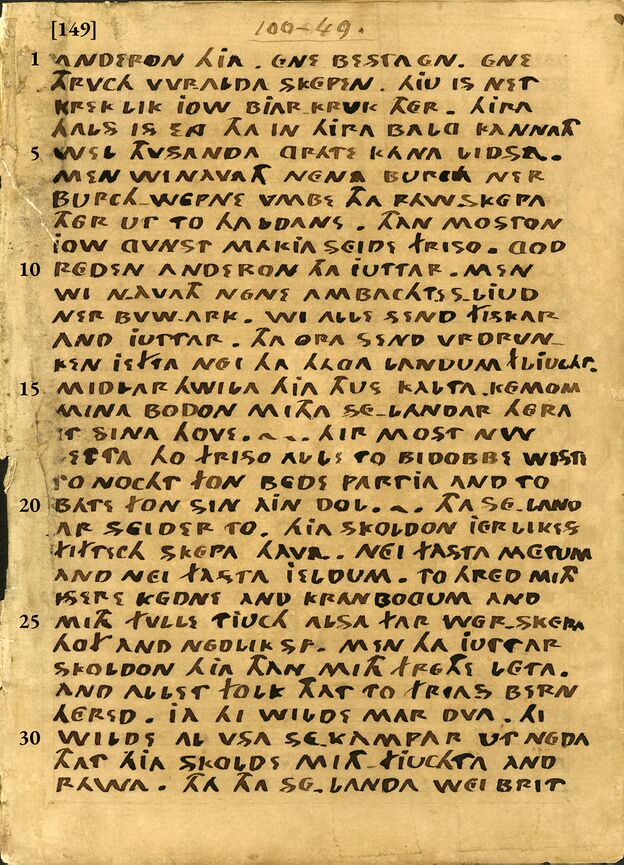 [149] 100-49.
1 ANDERON HIA . ENE BESTA EN. ENE
THRVCH VVRALDA SKEPEN. HIU IS NET
KREK LIK IOW BIAR-KRUK THER. HIRA
HALS IS ENG THA IN HIRA BALG KANNATH
5 WEL THUSANDA GRATE KANA LIDSA.
MEN WI NAVATH NENE BURCH NER
BURCH-WEPNE VMBE THA RAW-SKEPA
THER UT TO HALDANE. THAN MOSTON
IOW GVNST MAKIA SEIDE FRISO. GOD
10 REDEN ANDERON THA IUTTAR. MEN
WI NAVATH NENE AMBACHTES-LIUD
NER BVW-ARK. WI ALLE SEND FISKAR
AND IUTTAR. THA ORA SEND VRDRUN-
KEN IEFTA NEI HA HAGA LANDUM FLIUCHT.
15 MIDLAR HWILA HIA THUS KALTA. KEMOM
MINA BODON MITHA SE-LANDAR HERA
ET SINA HOVE. ~ ~. HIR MOST NW
LETTA HO FRISO ALLE TO BIDOBBE WISTE
TO NOCHT FON BEDE PARTIA AND TO
20 BATE FON SIN AIN DOL. ~. THA SE-LAND
AR SEIDER TO. HIA SKOLDON IERLIKES
FIFTECH SKEPA HAVA. NEI FASTA METUM
AND NEI FASTA IELDUM. TO HRED MITH
ISERE KEDNE AND KRANBOGUM AND
25 MITH FULLE TIUCH ALSA FAR WER-SKEPA
HOF AND NEDLIK SI. MEN HA IUTTAR
SKOLDON HIA THAN MITH FRETHE LETA.
AND ALLET FOLK THAT TO FRIAS BERN
HERED. IA HI WILDE MAR DVA. HI
30 WILDE AL VSA SE-KAMPAR UT NEDA
THAT HIA SKOLDE MITH-FIUCHTA AND
RAWA. THA THA SE-LANDA WEI BRIT